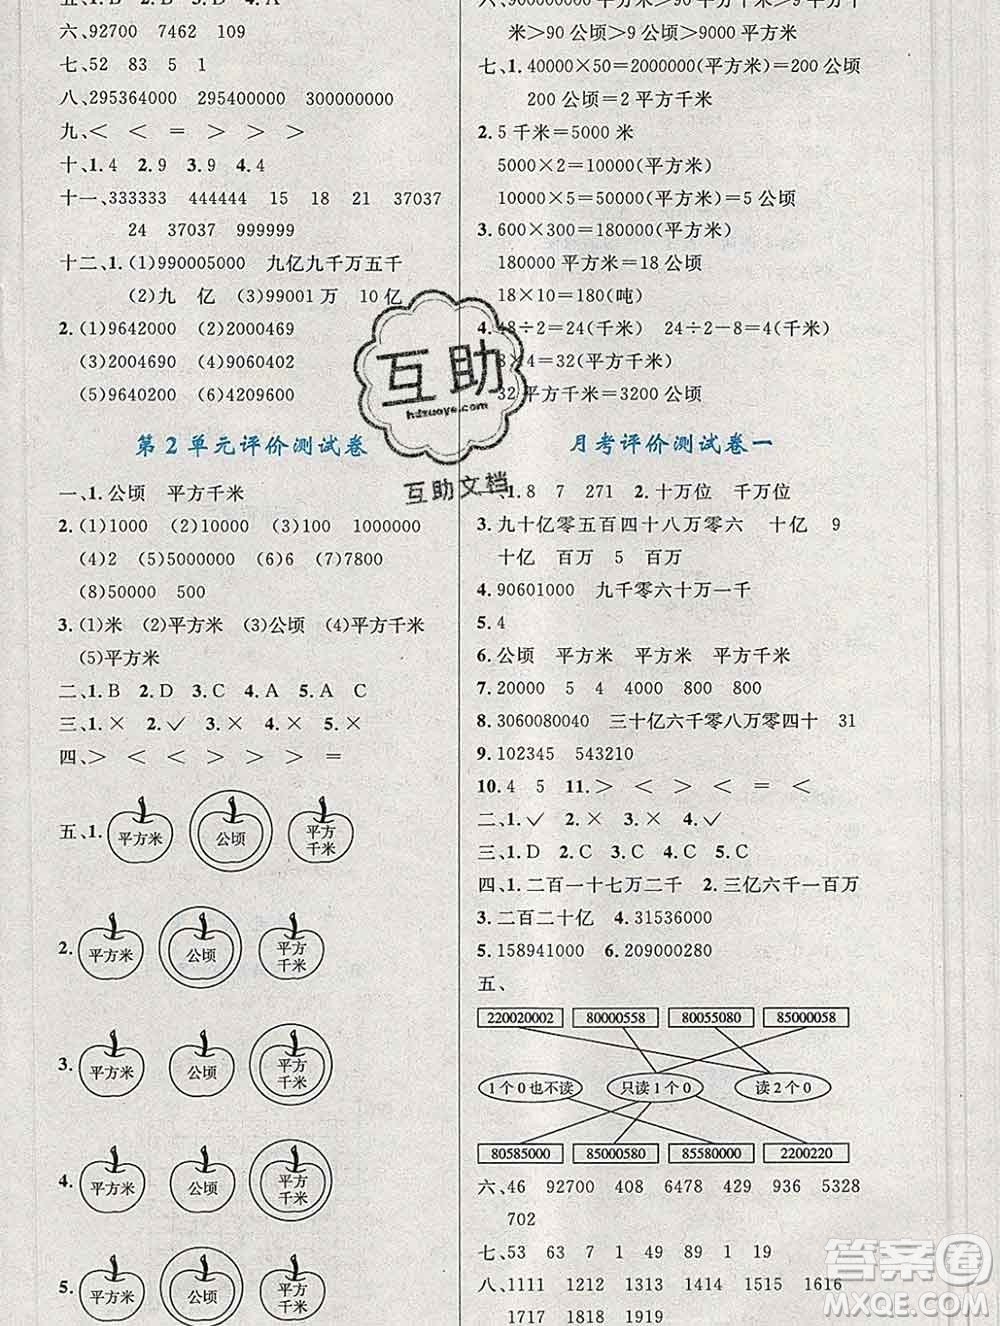 五、1. B 2. D 3. C 4. A
六、92700 7462 109
七、52 83 5 1
八、295364000 295400000 300000000
九、＜ ＜ ＝ ＞ ＞ ＞
十、1. 4 2. 9 3. 9 4. 4
十一、333333 444444 15 18 21 37037
24 37037 999999
十二、1. (1)990005000 九亿九千万五千
(2)九 亿 (3)99001万 10亿
2. (1)9642000 (2)2000469
(3)2004690 (4)2469000
(5)9640200 (6)4209600
第2单元评价测试卷
一、1. 公顷 平方千米
2. (1)1000 (2)10000 (3)100 1000000
(4)2 (5)12000000 (6)6 (7)7800
(8)50000 500
3. (1)米 (2)平方米 (3)公顷 (4)平方千米
(5)平方米
二、1. B 2. D 3. C 4. A 5. A C
三、1. × 2. ✓ 3. × 4. × 5. ×
四、＞ ＜ ＜ ＞ ＞ ＝
五、1. 平方米 公顷 平方千米
2. 平方米 公顷 平方千米
3. 平方米 公顷 平方千米
4. 平方米 公顷 平方千米
5. 平方米 公顷 平方千米
六、900000000平方米＞900000平方千
米＞90公顷＞9公顷＞9000平方米
七、1. 40000×50＝2000000(平方米)＝200公顷
200公顷＝2平方千米
2. 5千米＝5000米
5000×2＝10000(平方米)
10000×5＝50000(平方米)＝5公顷
3. 600×300＝180000(平方米)
180000平方米＝18公顷
18×10＝180(吨)
4. 48÷2＝24(千米) 24÷2－8＝4(千米)
8×4＝32(平方千米)
32平方千米＝3200公顷
月考评价测试卷一
一、1. 8 7 271 2. 十万位 千万位
3. 九十亿零五百四十八万零六 十亿 9
十亿 百万 5 百万
4. 90601000 九千零六十万一千
5. 4
6. 公顷 平方米 平方米 平方千米
7. 20000 5 7000000 400 800 800
8. 3060080040 三十亿六千零八万零四十 31
9. 102345 543210
10. 4 5 11. ＞ ＜ ＞ ＜ ＝ ＜
二、1. ✓ 2. × 3. × 4. ✓
三、1. D 2. C 3. C 4. D 5. C
四、1. 二百一十七万二千 2. 三亿六千一百万
3. 二百二十亿 4. 31536000
5. 158941000 6. 209000280
五、
220020002 80000558 80055080 85000058
1个0也不读 只读1个0 读2个0
80585000 85000580 85580000 2200220
六、46 92700 408 6478 429 936 5328
702
七、53 63 7 1 49 89 1 19
八、1111 1212 1313 1414 1515 1616
1717 1818 1919
互助
hdzuoye.com
互助文档
答案圈
MXQE.COM